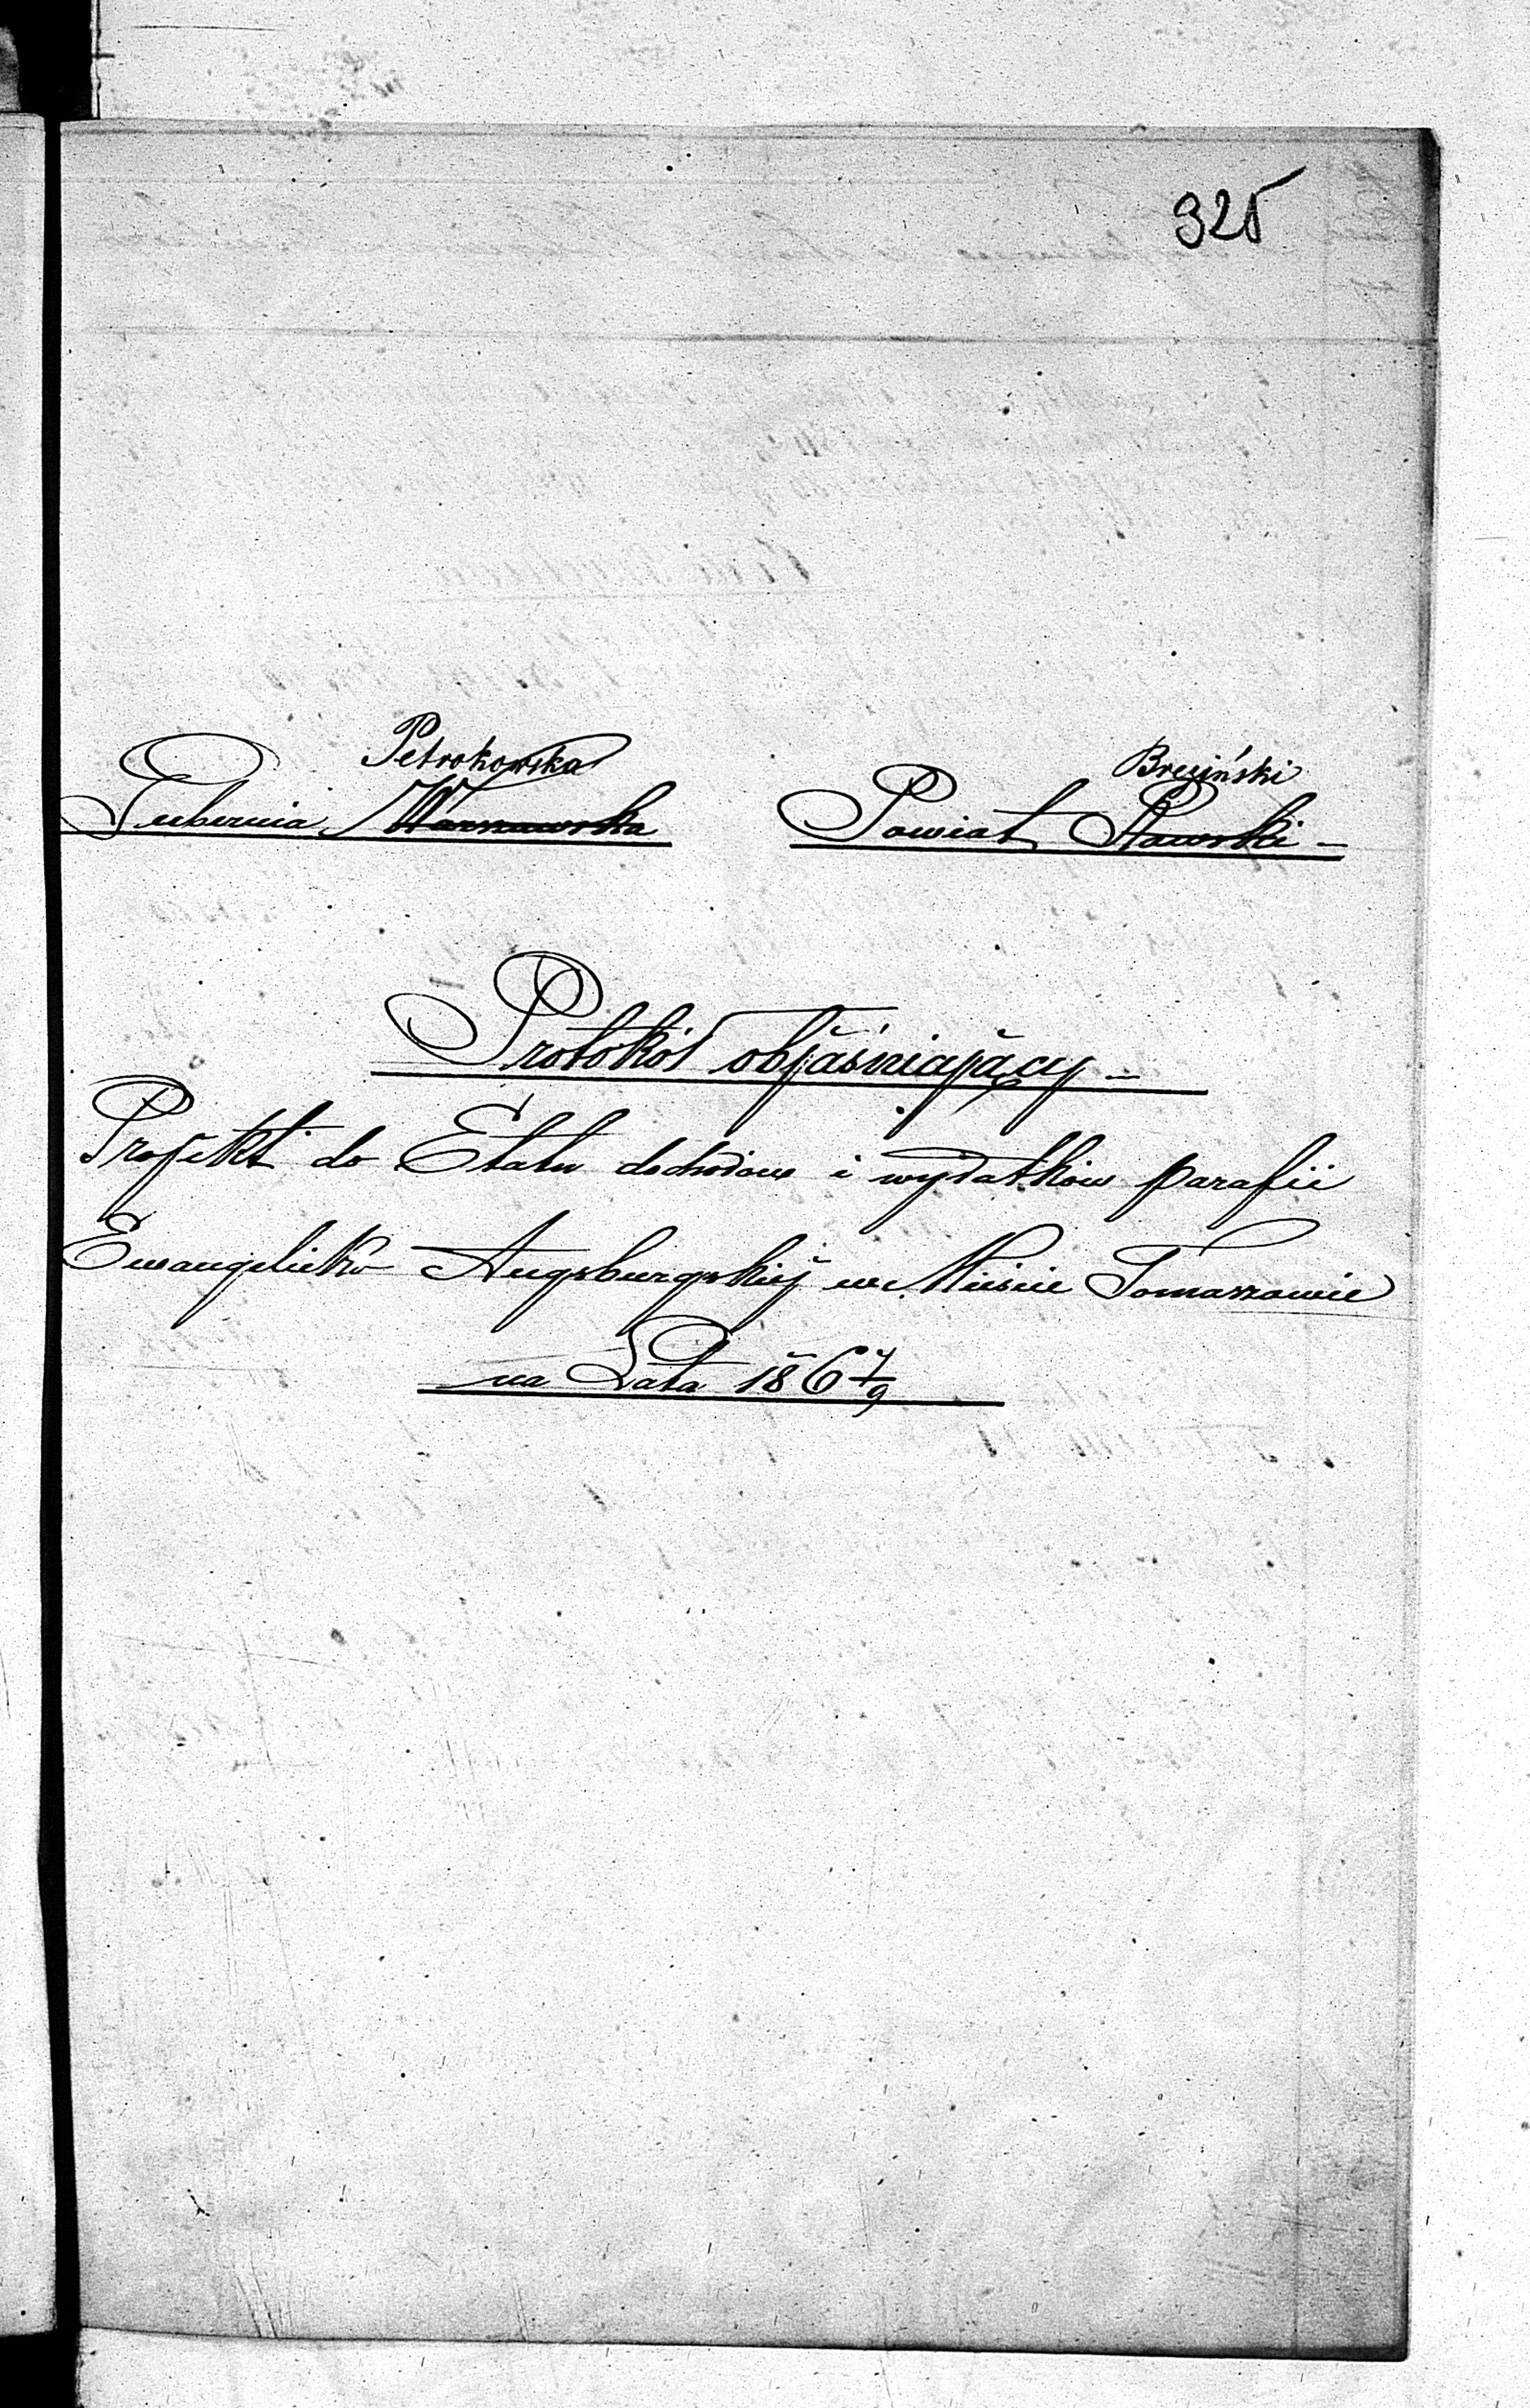 325
Petrokowska Breziński
Gubernia Warszawska Powiat Rawski –
Protokół objaśniający –
Projekt do Etatu dochodow i wydatkow parafii
Ewangelicko Augsburgskiéj we Mieście Tomaszowie
na Lata 186 7/9